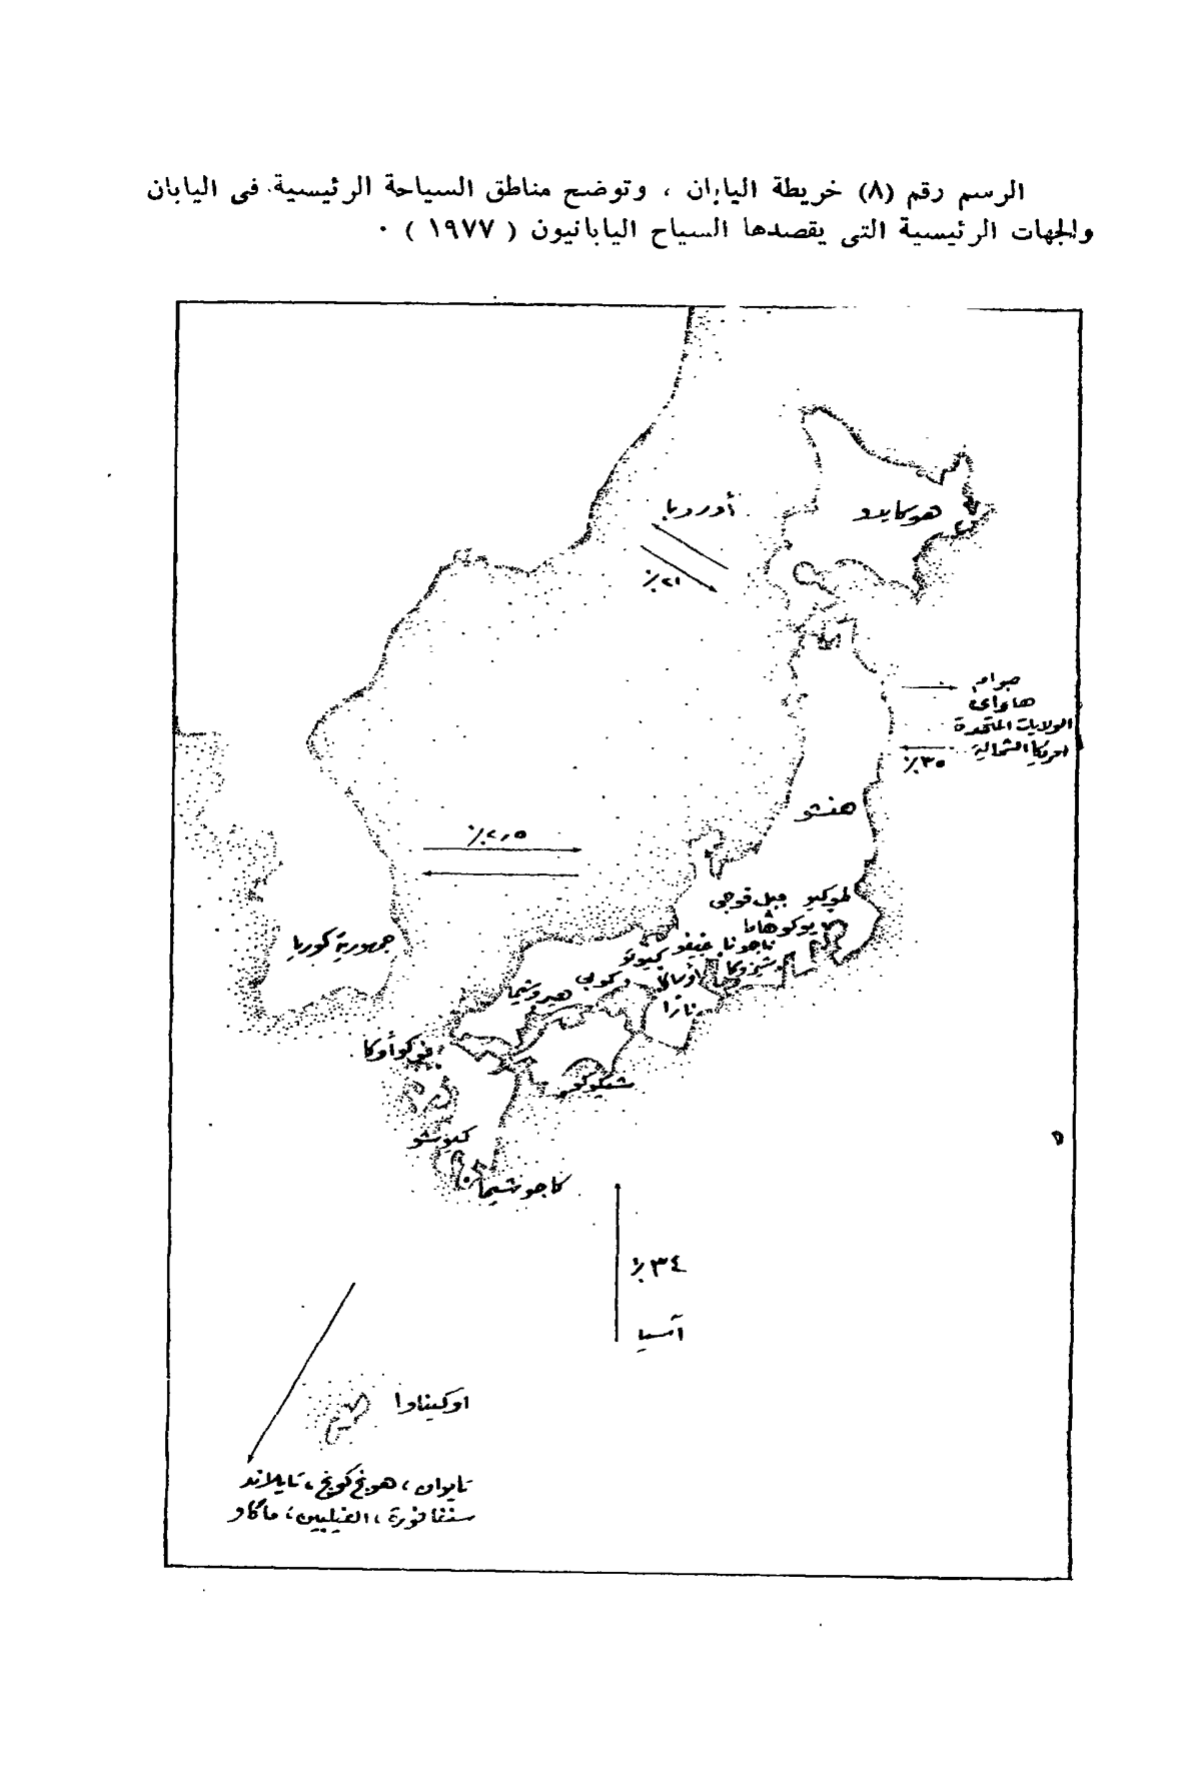 الرسم رقم (٨) خريطة اليابان ، وتوضح مناطق السياحة الرئيسية فى اليابان
والجهات الرئيسية التى يقصدها السياح اليابانيون ( ١٩٧٧ ) ٠
أوروبا
هوكايدو
٢١٪
جوام
هاواى
الولايات المتحدة
امريكا الشمالية
٣٥٪
هنشو
٢٫٥٪
طوكيو جبل فوجى
يوكوهاما
ناجونا جيفو كيوتو
جمهورية كوريا
شيزوكا
أوساكا
كوبى
هيروشيما
نارا
فوكوأوكا
شيكوكو
كيوشو
٥
كاجوشيما
٣٤٪
آسيا
اوكيناوا
تايوان ، هونج كونج ، تايلاند
سنغافورة ، الفيليبين ، ماكاو